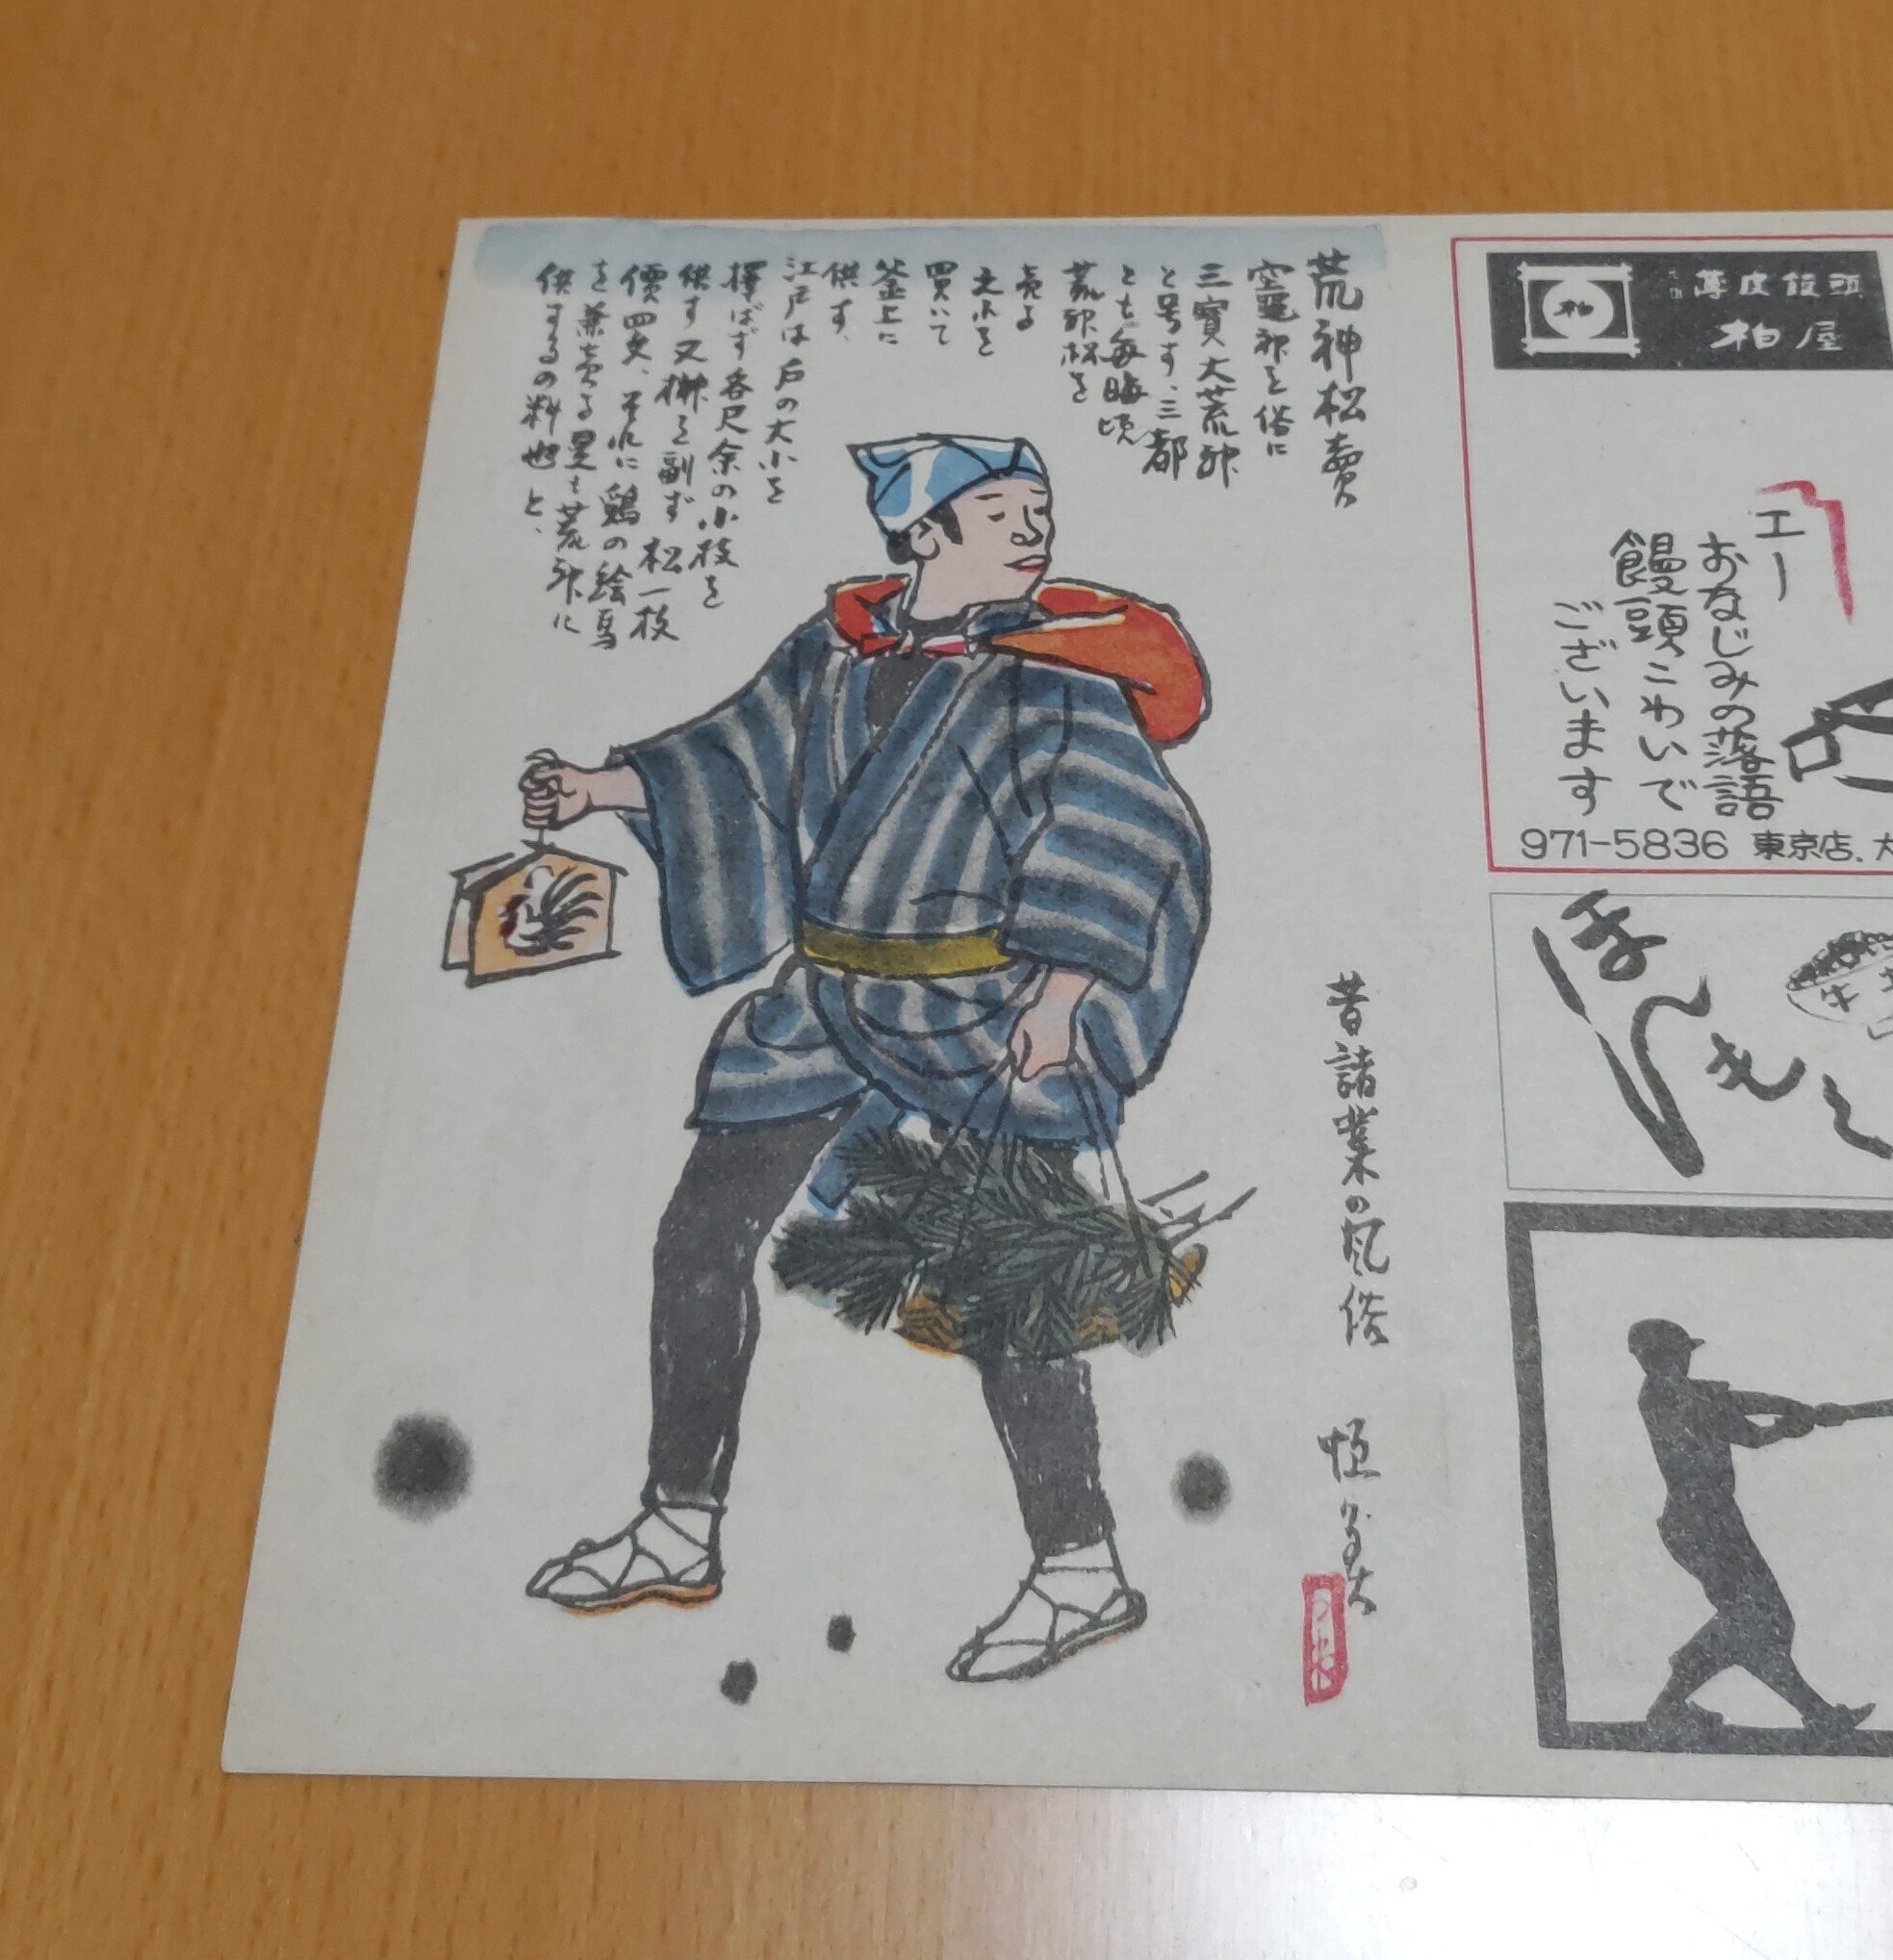 荒神松賣
空竈神を俗に
三寳大荒神
と号す、三都
とも毎晦頃
荒神松を
売る
之れを
買いて
釜上に
供す、
江戸は戸の大小を
擇ばず各尺余の小枝を
供す又榊を副ず松一枝
價四文、それに鶏の絵馬
を兼売る是も荒神に
供するの料也と、
昔諸業の風俗
恒
薄皮饅頭
柏
柏屋
エー
おなじみの落語
饅頭こわいで
ございます
971-5836 東京店、大